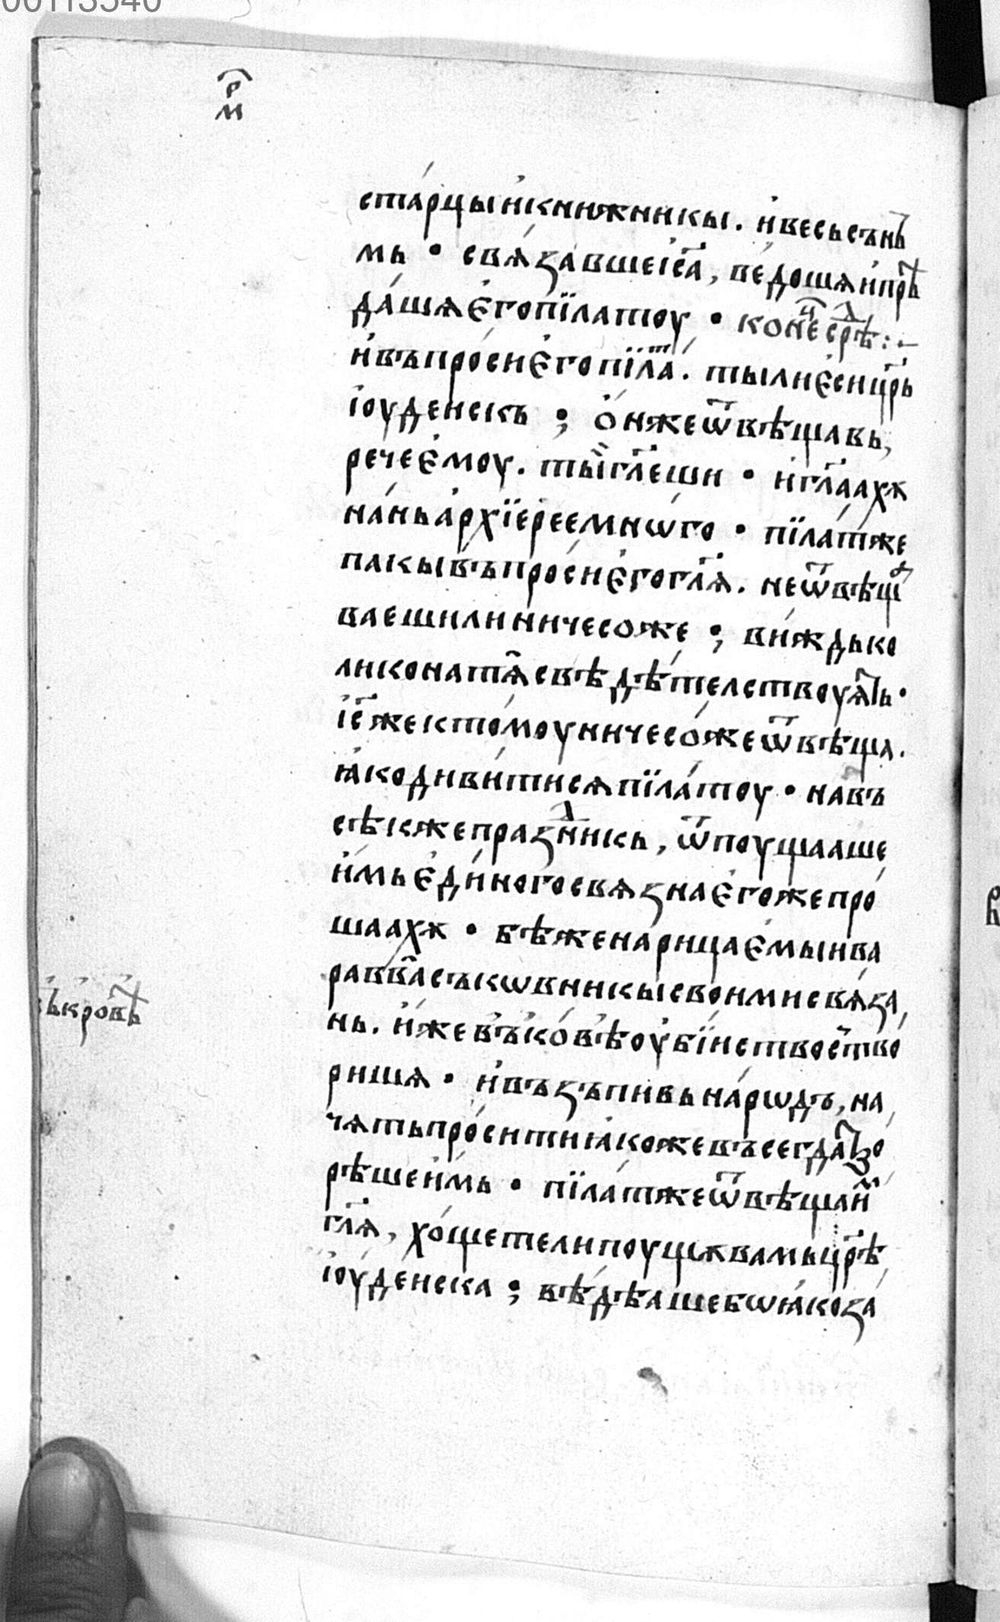 00113540
р҃м
ста́рцы и҆книжникы. и҆весь съньⷨ
мь · свѧ́завше і҆с҃а, ве́дошѧ и҆прⷣѣ
да́шѧ є҆го пїлатоу · коне́ⷰ срⷣѣ:~
и҆въпроси є҆го пїлаⷮ. ты ли є҆си цр҃ь
і҆оуде́искъ ; ѻ҆н же ѿвѣщавь,
рече є҆моу. ты̀ гл҃еши · и҆ гл҃аахѫ
на́нь а҆рхїере́е мнѡго · пїла́т же
пакы въпро́си є҆го гл҃ѧ. не ѿвѣщⷶ
ваеши ли ничесоже ; виждь ко
лико на тѧ̀ свѣдѣ́телствоуѧⷮь ·
і҆с҃ же ктомоу ничесо́же ѿвѣща.
ꙗ҆ко дивитисѧ пїла́тоу · на въ
сѣк же празⷣникь, ѿпоущааше
и҆мь є҆ди́ного свѧзна є҆гоже про
шаахѫ · бѣ же на́рицаємыи ва
равва̀ съ кѡвникы своими свѧ́за,
нь. и҆же въ ко́вѣ оу҆бїиство сⸯтво
ришѧ · и҆ възъпивь на́рѡдъ, на
чѧть про́сити ꙗ҆коже въсегда̀ тⷡо
рѣше и҆мь · пїла́т же ѿвѣща и҆мⸯ
гл҃ѧ, хо́щете ли поущѫ вамь цр҃ѣ
і҆оуде́иска ; вѣ́дѣаше бѡ ꙗ҆ко за
зѣкровⷯь